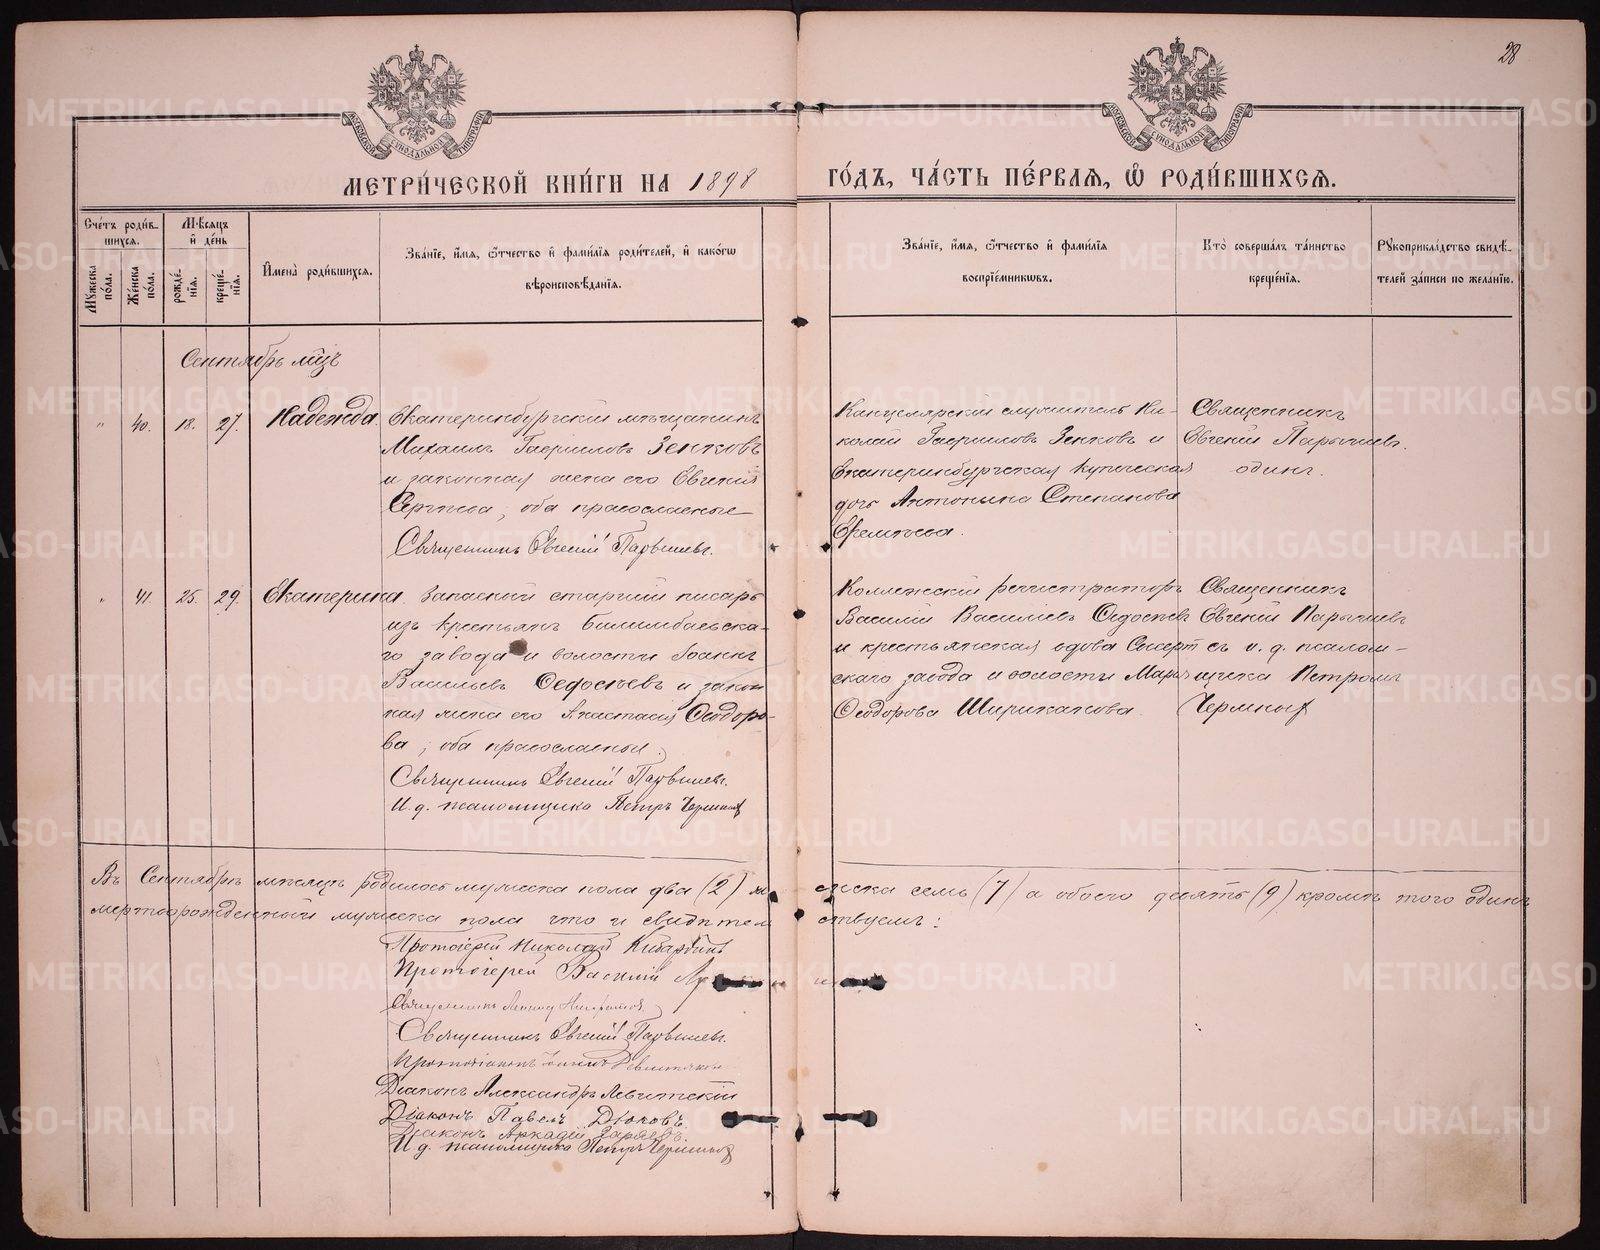 28
МОСКОВСКОЙ СѴНОДАЛЬНОЙ ТИПОГРАФІИ
МОСКОВСКОЙ СѴНОДАЛЬНОЙ ТИПОГРАФІИ
МЕТРИ́ЧЕСКОЙ КНИ́ГИ НА 1898 ГО́ДЪ, ЧА́СТЬ ПЕ́РВАѦ, Ѡ҆ РОДИ́ВШИХСѦ.
Сче́тъ роди́вшихсѧ.
Мꙋ́жеска по́ла.
Же́нска по́ла.
Мѣ́сѧцъ и҆ де́нь
рожде́нїѧ.
креще́нїѧ.
И҆мена̀ роди́вшихсѧ.
Зва́нїе, и҆́мѧ, ѻ҆́тчество и҆ фами́лїѧ роди́телей, и҆ како́гѡ
вѣроисповѣ́данїѧ.
Зва́нїе, и҆́мѧ, ѻ҆́тчество и҆ фами́лїѧ
воспрїе́мникѡвъ.
Кто̀ соверша́лъ та́инство
креще́нїѧ.
Рꙋкоприкла́дство свидѣ́телей за́писи по жела́нїю.
Сентябрь мцъ
" 40. 18. 27. Надежда.
Екатеринбургскій мѣщанинъ
Михаилъ Гавріиловъ Зенковъ
и законная жена его Евгенія
Сергѣева, оба православные
Священникъ Евгеній Парышевъ.
Канцелярскій служитель Ни-
колай Гавріиловъ Зенковъ и
Екатеринбургская купеческая
дочь Антонина Степанова
Еремѣева.
Священникъ
Евгеній Парышевъ.
одинъ.
" 41. 25. 29. Екатерина.
Запасный старшій писарь
изъ крестьянъ Билимбаевска-
го завода и волости Іоаннъ
Васильевъ Ѳедосѣевъ и закон
ная жена его Анастасія Ѳеодоро-
ва, оба православные.
Священникъ Евгеній Парышевъ.
И. д. псаломщика Петръ Черныхъ
Коллежскій регистраторъ
Василій Василіевъ Ѳедосѣевъ
и крестьянская вдова Сысерт
скаго завода и волости Марѳа
Ѳеодорова Ширинкинова.
Священникъ
Евгеній Парышевъ
съ и. д. псалом-
щика Петромъ
Черныхъ
Въ Сентябрѣ мѣсяцѣ родилось мужеска пола два (2) женска семь (7) а обоего девять (9) кромѣ того одинъ
мертворожденный мужеска пола что и свидѣтельствуемъ:
Протоіерей Николай Кибардинъ
Протоіерей Василій
Священникъ
Священникъ Евгеній Парышевъ.
Протодіаконъ
Діаконъ Александръ Левитскій
Діаконъ Павелъ Дюковъ.
Діаконъ Аркадій Заряевъ.
И. д. псаломщика Петръ Черныхъ